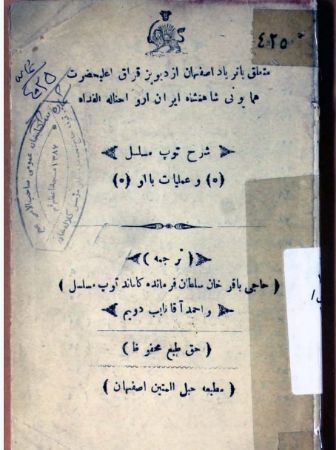 ۴۲۵۰
متعلق باتریاد اصفهان ازدیویز قزاق اعلیحضرت
همایونی شاهنشاه ایران ارواحناله الفداه
شرح توپ مسلسل
(۵) و عملیات با او (۵)
(ترجمه)
(حاجی باقر خان سلطان فرمانده کماند توپ مسلسل)
واحمد آقا نایب دویم
(حق طبع محفوظا)
(مطبعه حبل المتین اصفهان)